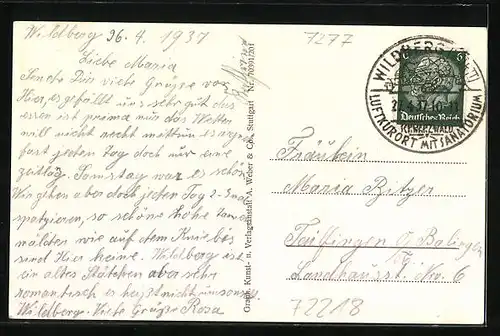 Wildberg 26. 4. 1937
Liebe Maria
Sende Dir viele Grüsse von
hier, es gefällt uns sehr gut das
essen ist prima nur das Wetter
will nicht recht mittun es regn
fast jeden Tag doch nur eine
zeitlag. Samstag war es schön
Wir gehen aber doch jeden Tag 2-
spatzieren, so schöne hohe Tannen
wälder wie auf dem Kniebis
sind hier keine. Wildberg ist
ein altes Städtchen aber sehr
romantisch es heyst nicht umsonst
Wildberg. Viele Grüsse Rosa
Graph. Kunst- u. Verlagsanstalt A. Weber & Co., Stuttgart Nr. 70391201
7277
WILDBERG
6
Deutsches Reich
SCHWARZWALD
LUFTKURORT MIT SANATORIUM
Fräulein
Maria Bitzer
Tailfingen b/ Balingen
Landhausst. No. 6
72218